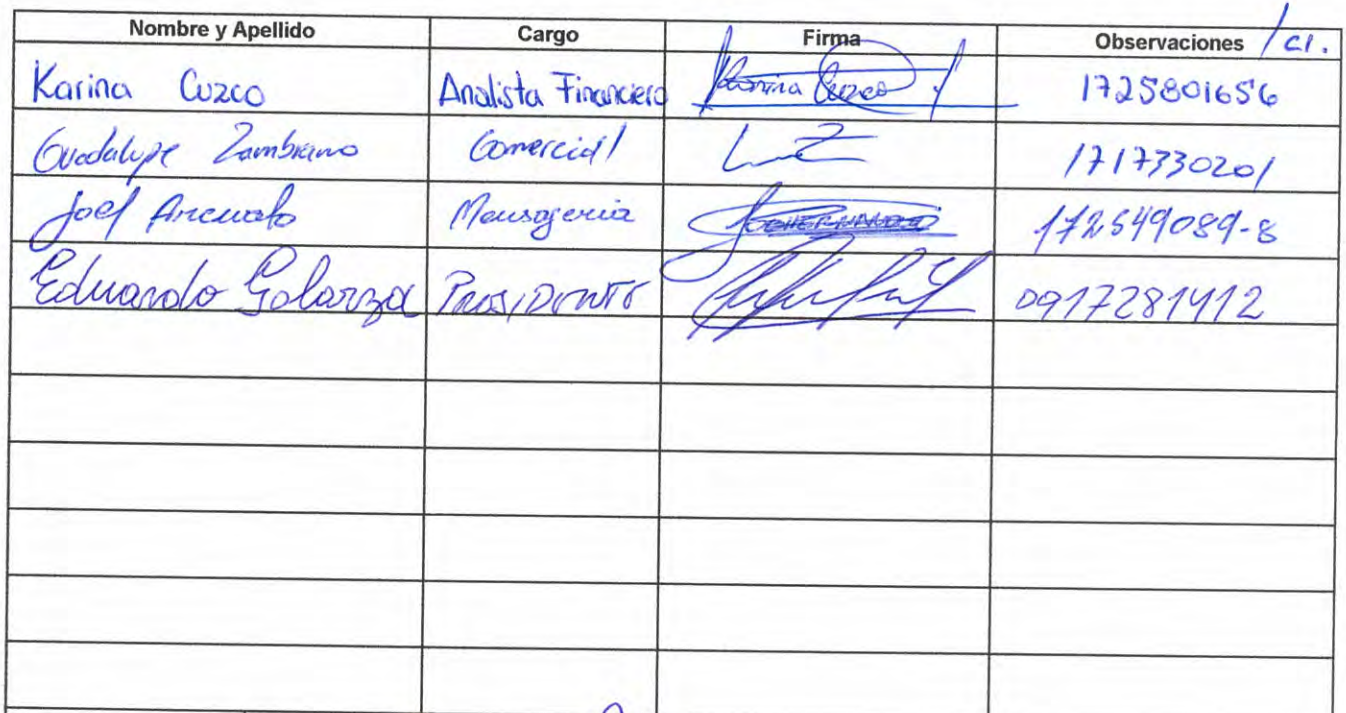 Nombre y Apellido Cargo Firma Observaciones / CI.
Karina Cuzco Analista Financiero Karina Cuzco 1725801656
Guadalupe Zambrano Comercial 1717330201
Joel Mensajeria 172549089-8
Eduardo Galarza Presidente 0917281412